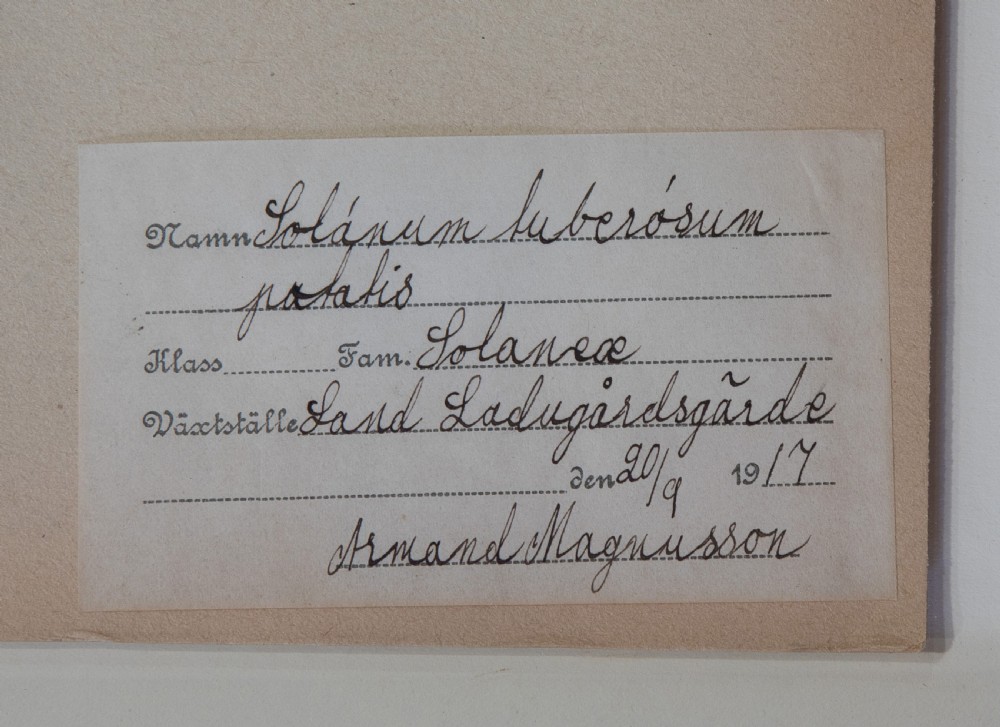 Namn Solánum tuberósum
potatis
Klass Fam. Solaneæ
Växtställe Sand Ladugårdsgärde
den 20/9 1917
Armand Magnusson